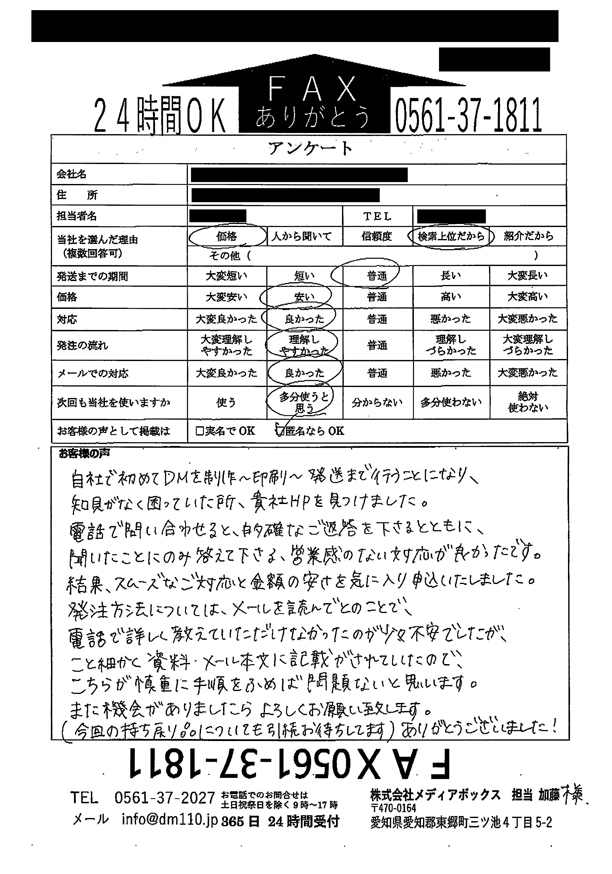 FAX
ありがとう
24時間OK 0561-37-1811
アンケート
会社名
住 所
担当者名 TEL
当社を選んだ理由 (複数回答可) 価格 人から聞いて 信頼度 検索上位だから 紹介だから
その他 ( )
発送までの期間 大変短い 短い 普通 長い 大変長い
価格 大変安い 安い 普通 高い 大変高い
対応 大変良かった 良かった 普通 悪かった 大変悪かった
発注の流れ 大変理解しやすかった 理解しやすかった 普通 理解しづらかった 大変理解しづらかった
メールでの対応 大変良かった 良かった 普通 悪かった 大変悪かった
次回も当社を使いますか 使う 多分使うと思う 分からない 多分使わない 絶対使わない
お客様の声として掲載は □実名でOK ☑匿名ならOK
お客様の声
自社で初めてDMを制作〜印刷〜発送まで行うことになり、
知見がなく困っていた所、貴社HPを見つけました。
電話で問い合わせると、的確なご返答を下さるとともに、
聞いたことにのみ答えて下さる、営業感のない対応が良かったです。
結果、スムーズなご対応と金額の安さを気に入り申込いたしました。
発注方法については、メールを読んでとのことで、
電話で詳しく教えていただけなかったのが少々不安でしたが、
こと細かく資料・メール本文に記載がされていたので、
こちらが慎重に手順をふめば問題ないと思います。
また機会がありましたらよろしくお願い致します。
(今回の持ち戻り品についても引続お待ちしてます) ありがとうございました!
FAX0561-37-1811
TEL 0561-37-2027 お電話でのお問合せは
土日祝祭日を除く9時～17時
メール info@dm110.jp 365日 24時間受付
株式会社メディアボックス 担当 加藤 様
〒470-0164
愛知県愛知郡東郷町三ツ池4丁目5-2